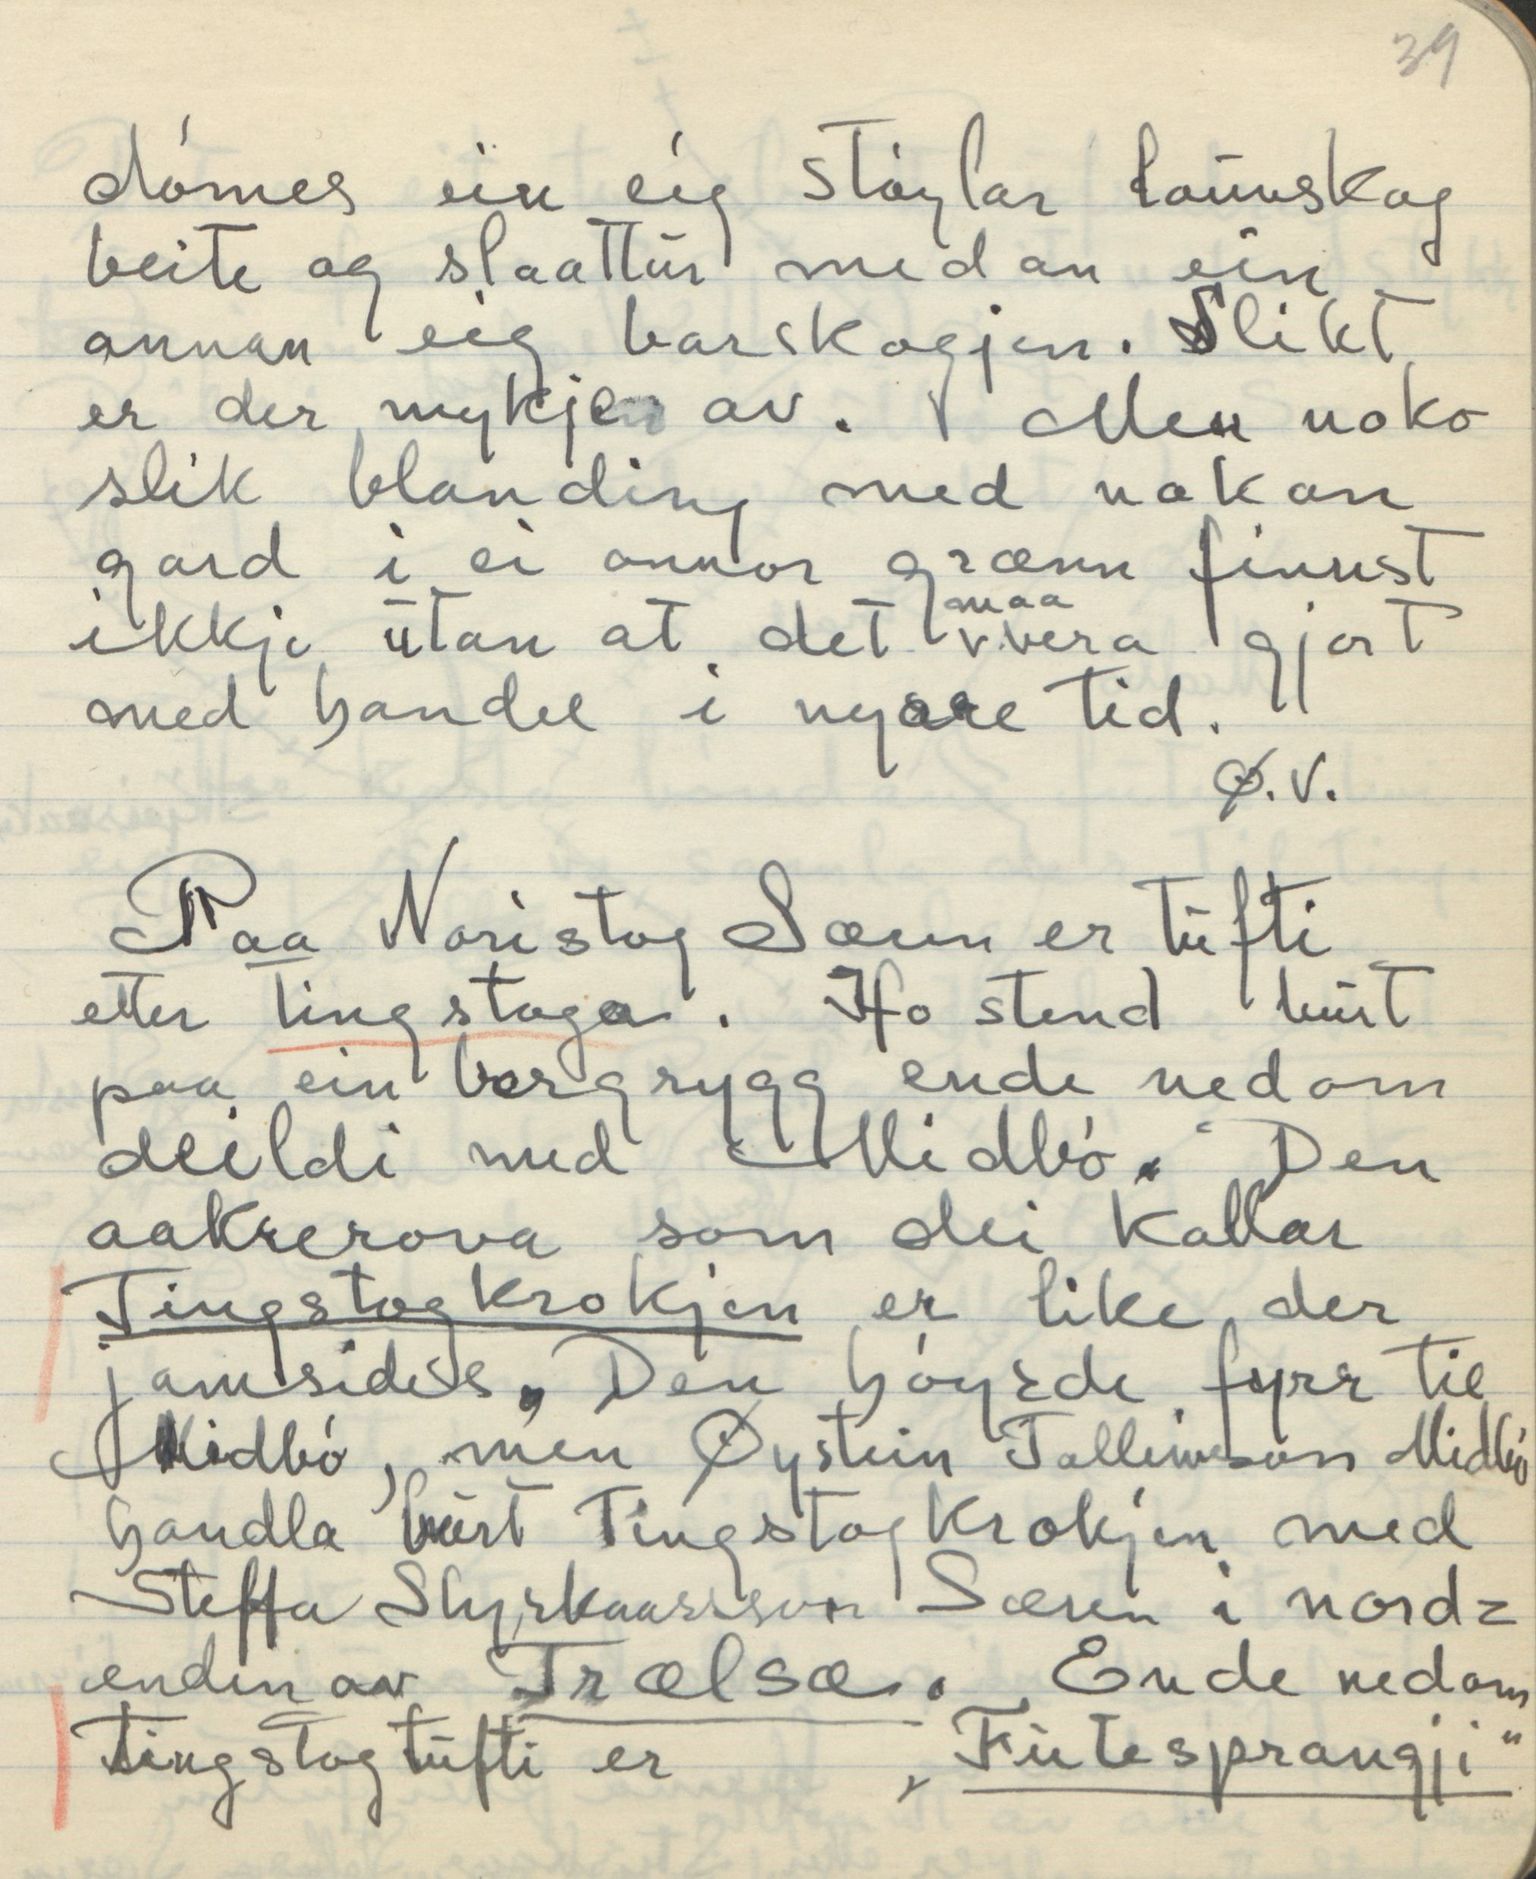 39
dómes ein eig stóylar launskog
beite og slaattur medan ein
annan eig barskogjen. Slikt
er der mykje av. Men noko
slik blanding med nokan
gard i ei annor grænn finnst
ikkje utan at det maa vera gjort
med handel i nyare tid.
Ø.V.
Paa Noristog Sæm er tufti
etter tingstoga. Ho stend burt
paa ein bergrygg ende nedom
deildi med Midbó. Den
aakrerova som dei kallar
Tingstogkrokjen er like der
jamsides. Den hóyrde fyrr til
Midbó, men Øystein Talleivson Midbó
handla burt Tingstogkrokjen med
Steffa Styrkaarsson Sæm i nord=
enden av Trælsæ. Ende nedom
tingstogtufti er „Futesprangji"